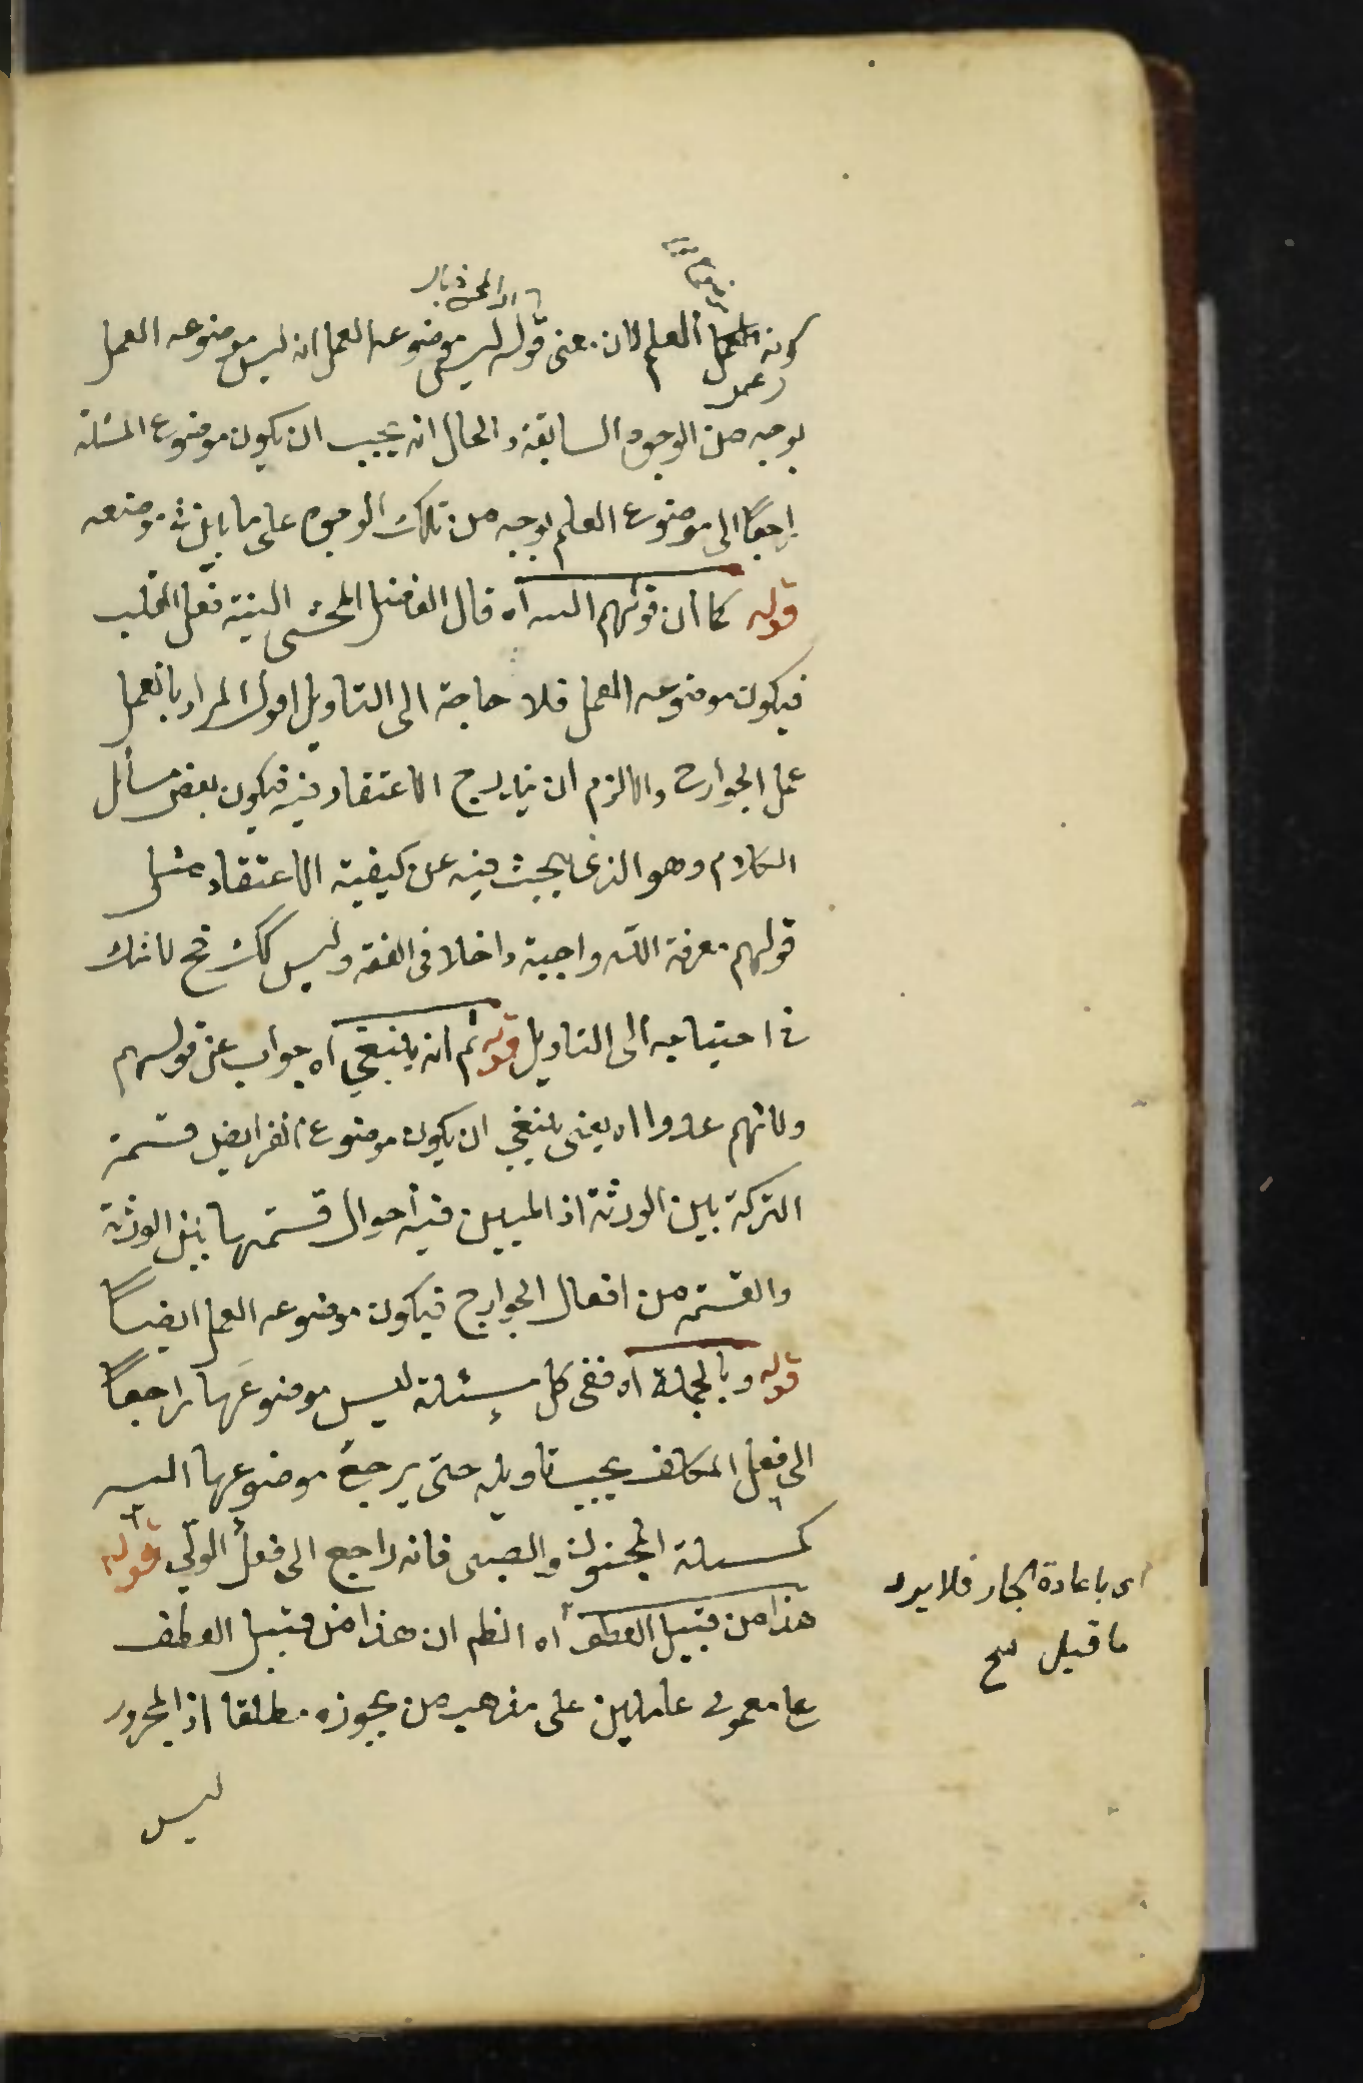 كونه العلم لان معنى قوله ليس موضوعه العمل انه ليس موضوعه العمل
بوجه من الوجوه السابقة والحال انه يجب ان يكون موضوع المسئلة
راجعًا الى موضوع العلم بوجه من تلك الوجوه على ما بين في موضعه
قوله كما ان قولهم النية اه قال الفاضل المحشى النية فعل القلب
فيكون موضوعه العمل فلا حاجة الى التاويل اقول المراد بالعمل
عمل الجوارح والا لزم ان يندرج الاعتقاد فيه فيكون بعض مسائل
الكلام وهو الذى يبحث فيه عن كيفية الاعتقاد مثل
قولهم معرفة الله واجبة داخلا فى الفقه وليس كك فح لا شك
فى احتياجه الى التاويل قوله ثم انه ينبغي اه جواب عن قولهم
ولانهم عدوا اه يعنى ينبغي ان يكون موضوع الفرايض قسمة
التركة بين الورثة اذ المبين فيه أحوال قسمتها بين الورثة
والقسمة من افعال الجوارح فيكون موضوعه العمل ايضاً
قوله وبالجملة اه ففى كل مسئلة ليس موضوعَها راجعاً
الى فعل المكلف يجب تاويله حتى يرجع موضوعها اليه
كمسئلة المجنون والصبى فانه راجع الى فعل الولي قوله
هذا من قبيل العطف اه اعلم ان هذا من قبيل العطف
على معمولى عاملين على مذهب من يجوزه مطلقا اذ المجرور
ليس
اى باعادة الجار فلا يرد
ما قيل